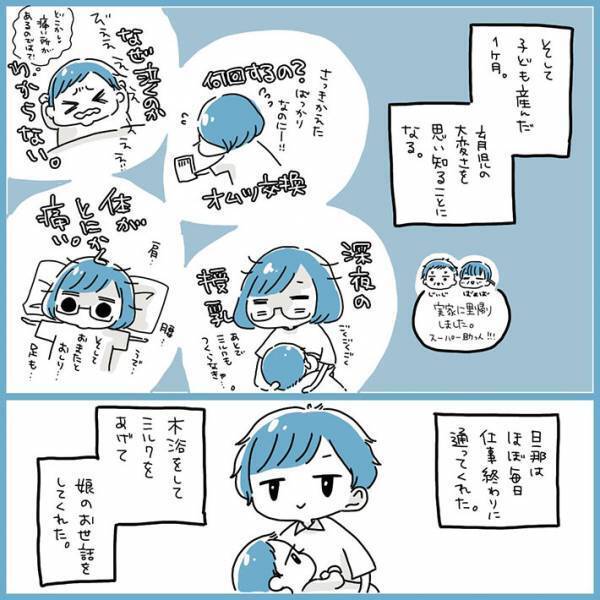 そして
子ども産んだ
1ヶ月。
育児の
大変さを
思い知ることに
なる。
何回するの？
さっきかえた
ばっかり
なのにー!!
オムツ交換
どこかしら
痛い所が
あるのでは？
なぜ泣くのか
わからない。
びえええ
えええ
じいじ
ばあば
実家に里帰り
しました。
スーパー助かる!!!
深夜の
授乳
ごくごくごく
あとで
ミルクも
つくらなきゃ…
体が
とにかく
痛い。
肩…
腰…
うで…
そして
おまたと
おしり
足も…
旦那は
ほぼ毎日
仕事終わりに
通ってくれた。
木浴をして
ミルクを
あげて
娘のお世話を
してくれた。